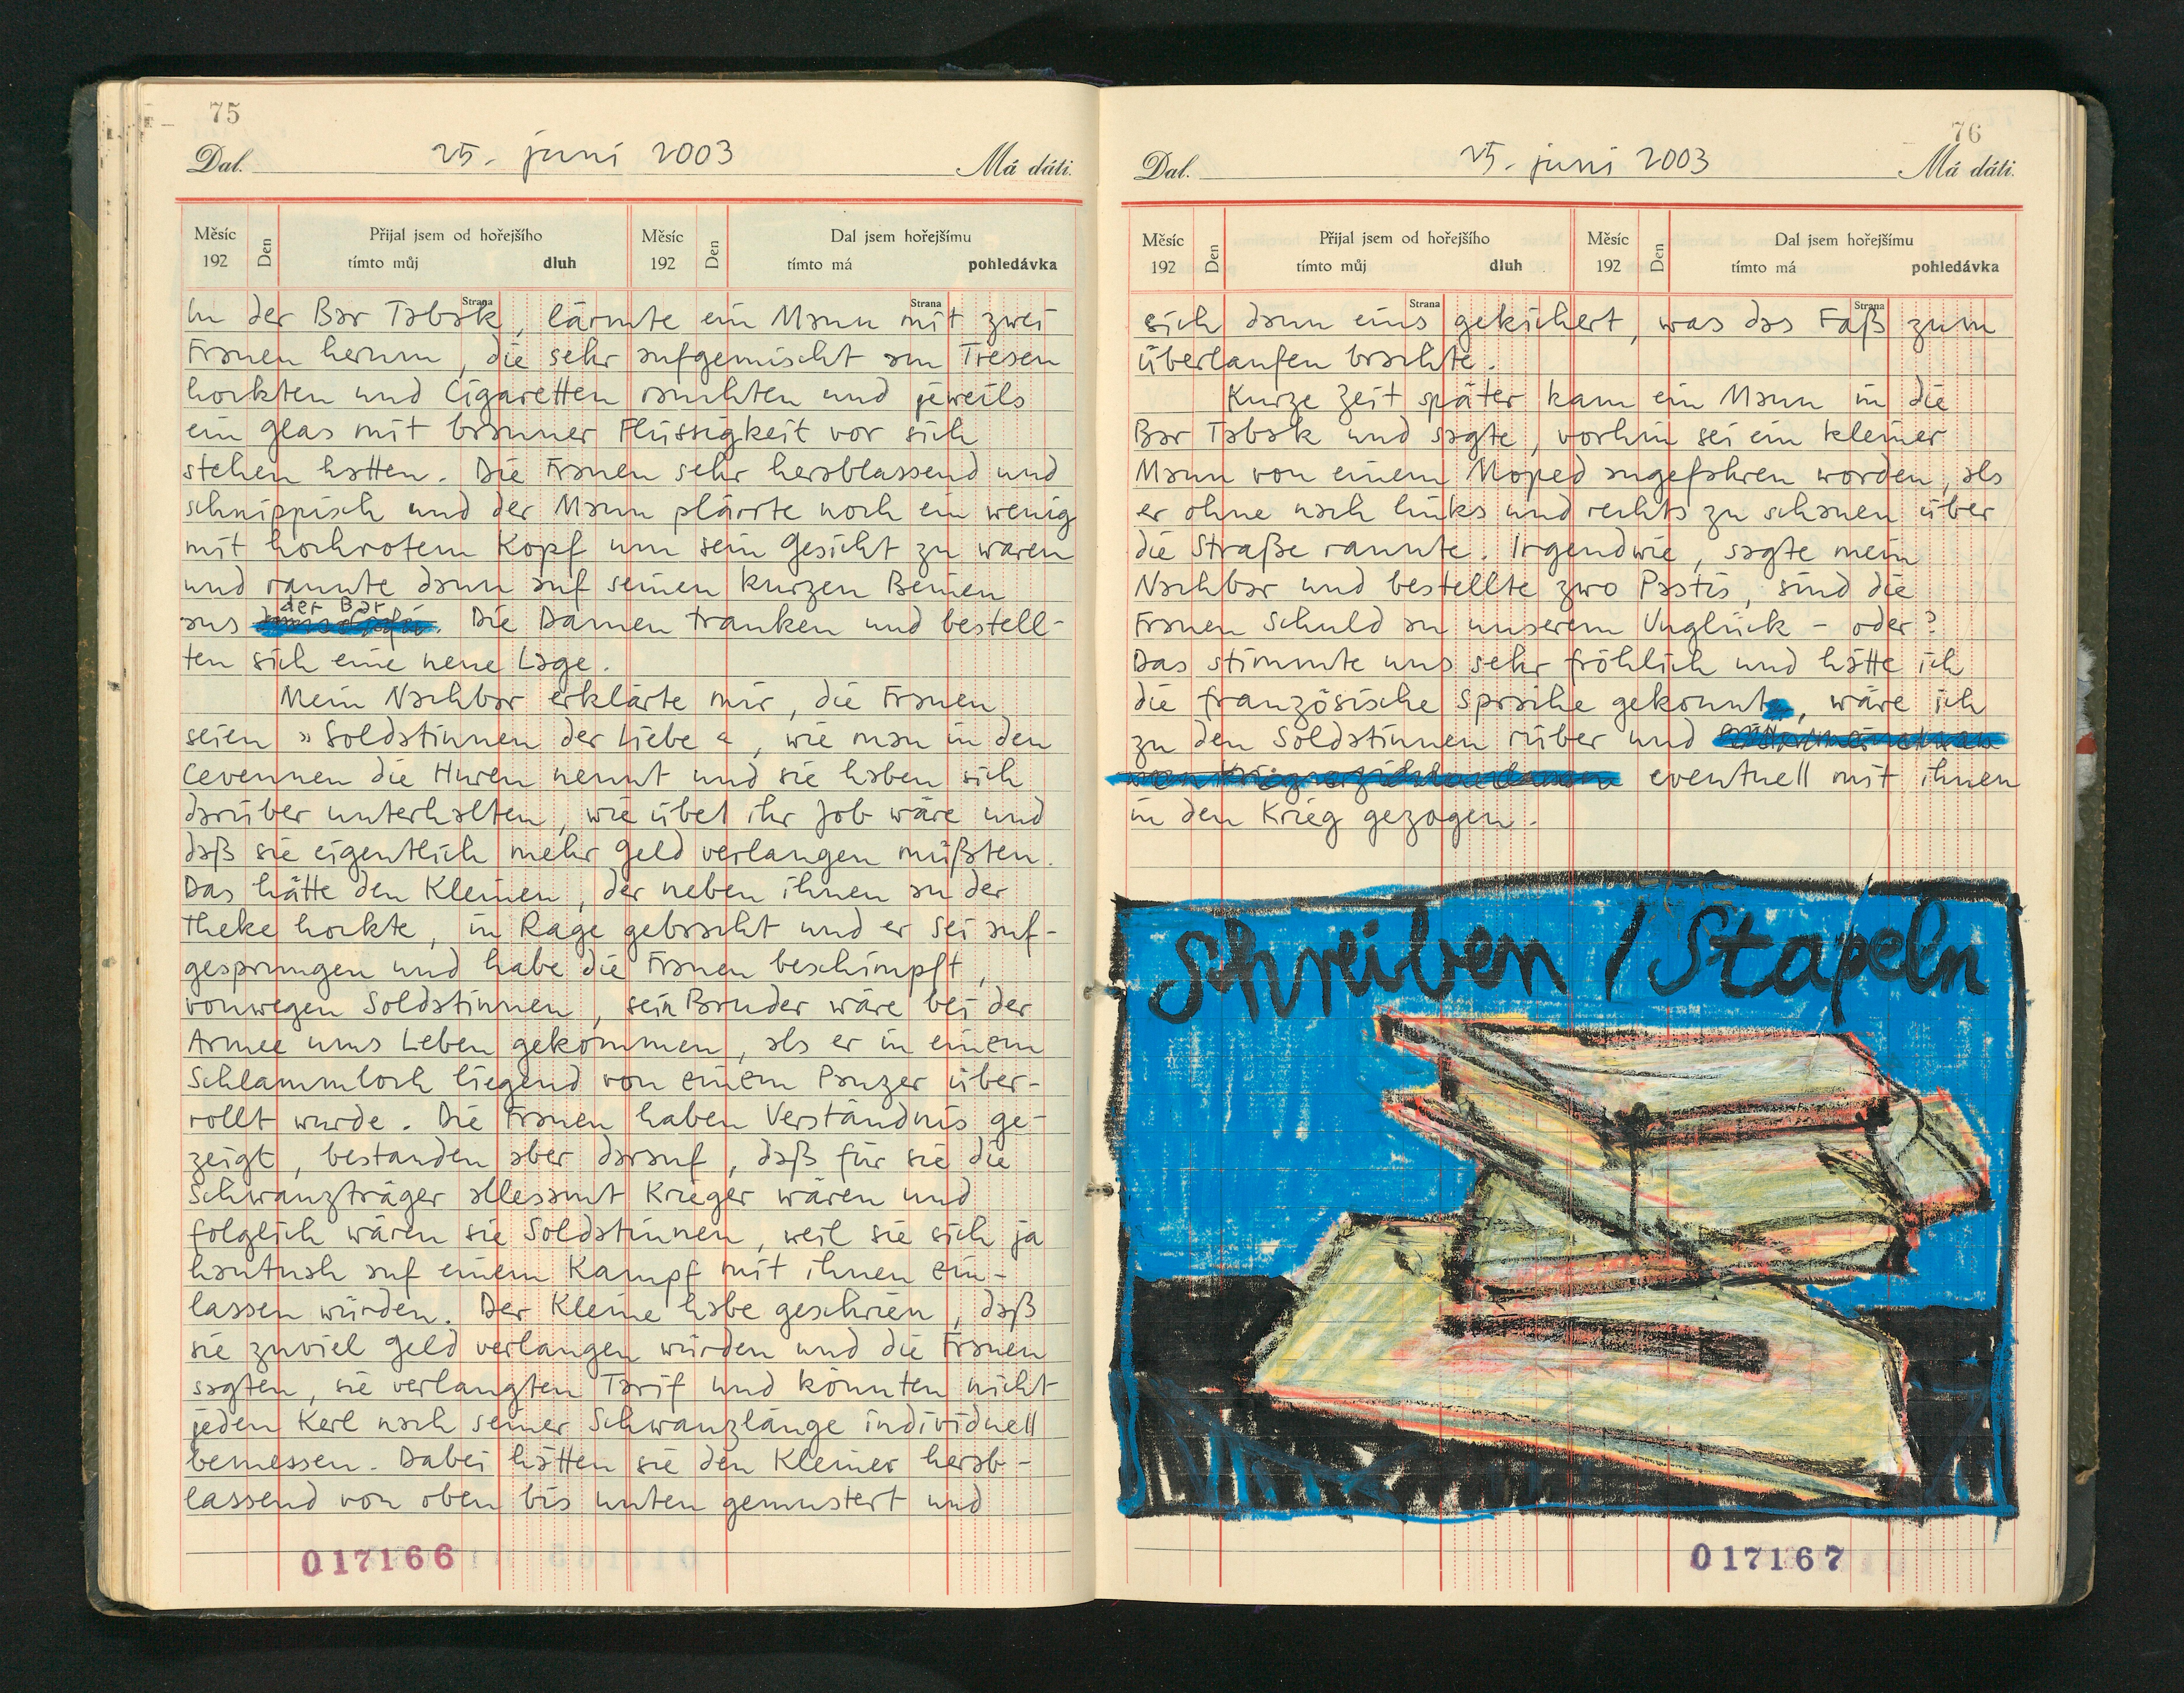 75
Dal. 25. juni 2003 Má dáti.
Měsíc 192 Den Přijal jsem od hořejšího tímto můj dluh Měsíc 192 Den Dal jsem hořejšímu tímto má pohledávka
Strana Strana
In der Bar Tabak, lärmte ein Mann mit zwei
Frauen herum, die sehr aufgemischt am Tresen
hockten und Cigaretten rauchten und jeweils
ein Glas mit brauner Flüssigkeit vor sich
stehen hatten. Die Frauen sehr herablassend und
schnippisch und der Mann plärrte noch ein wenig
mit hochrotem Kopf um sein Gesicht zu waren
und rannte dann auf seinen kurzen Beinen
der Bar
aus . Die Damen tranken und bestell-
ten sich eine neue Lage.
Mein Nachbar erklärte mir, die Frauen
seien »Soldatinnen der Liebe«, wie man in den
Cevennen die Huren nennt und sie haben sich
darüber unterhalten, wie übel ihr Job wäre und
daß sie eigentlich mehr Geld verlangen müßten.
Das hätte den Kleinen, der neben ihnen an der
Theke hockte, in Rage gebracht und er sei auf-
gesprungen und habe die Frauen beschimpft,
vonwegen Soldatinnen, sein Bruder wäre bei der
Armee ums Leben gekommen, als er in einem
Schlammloch liegend von einem Panzer über-
rollt wurde. Die Frauen haben Verständnis ge-
zeigt, bestanden aber darauf, daß für sie die
Schwanzträger allesamt Krieger wären und
folglich wären sie Soldatinnen, weil sie sich ja
hautnah auf einem Kampf mit ihnen ein-
lassen würden. Der Kleine habe geschrien, daß
sie zuviel Geld verlangen würden und die Frauen
sagten, sie verlangten Tarif und könnten nicht
jeden Kerl nach seiner Schwanzlänge individuell
bemessen. Dabei hätten sie den Kleiner herab-
lassend von oben bis unten gemustert und
017166
76
Dal. 25. juni 2003 Má dáti.
Měsíc 192 Den Přijal jsem od hořejšího tímto můj dluh Měsíc 192 Den Dal jsem hořejšímu tímto má pohledávka
Strana Strana
sich dann eins gekichert, was das Faß zum
überlaufen brachte.
Kurze Zeit später kam ein Mann in die
Bar Tabak und sagte, vorhin sei ein kleiner
Mann von einem Moped angefahren worden, als
er ohne nach links und rechts zu schauen über
die Straße rannte. Irgendwie, sagte mein
Nachbar und bestellte zwo Pastis, sind die
Frauen Schuld an unserem Unglück – oder?
Das stimmte uns sehr fröhlich und hätte ich
die französische Sprache gekonnt, wäre ich
zu den Soldatinnen rüber und
eventuell mit ihnen
in den Krieg gezogen.
Schreiben / Stapeln
017167